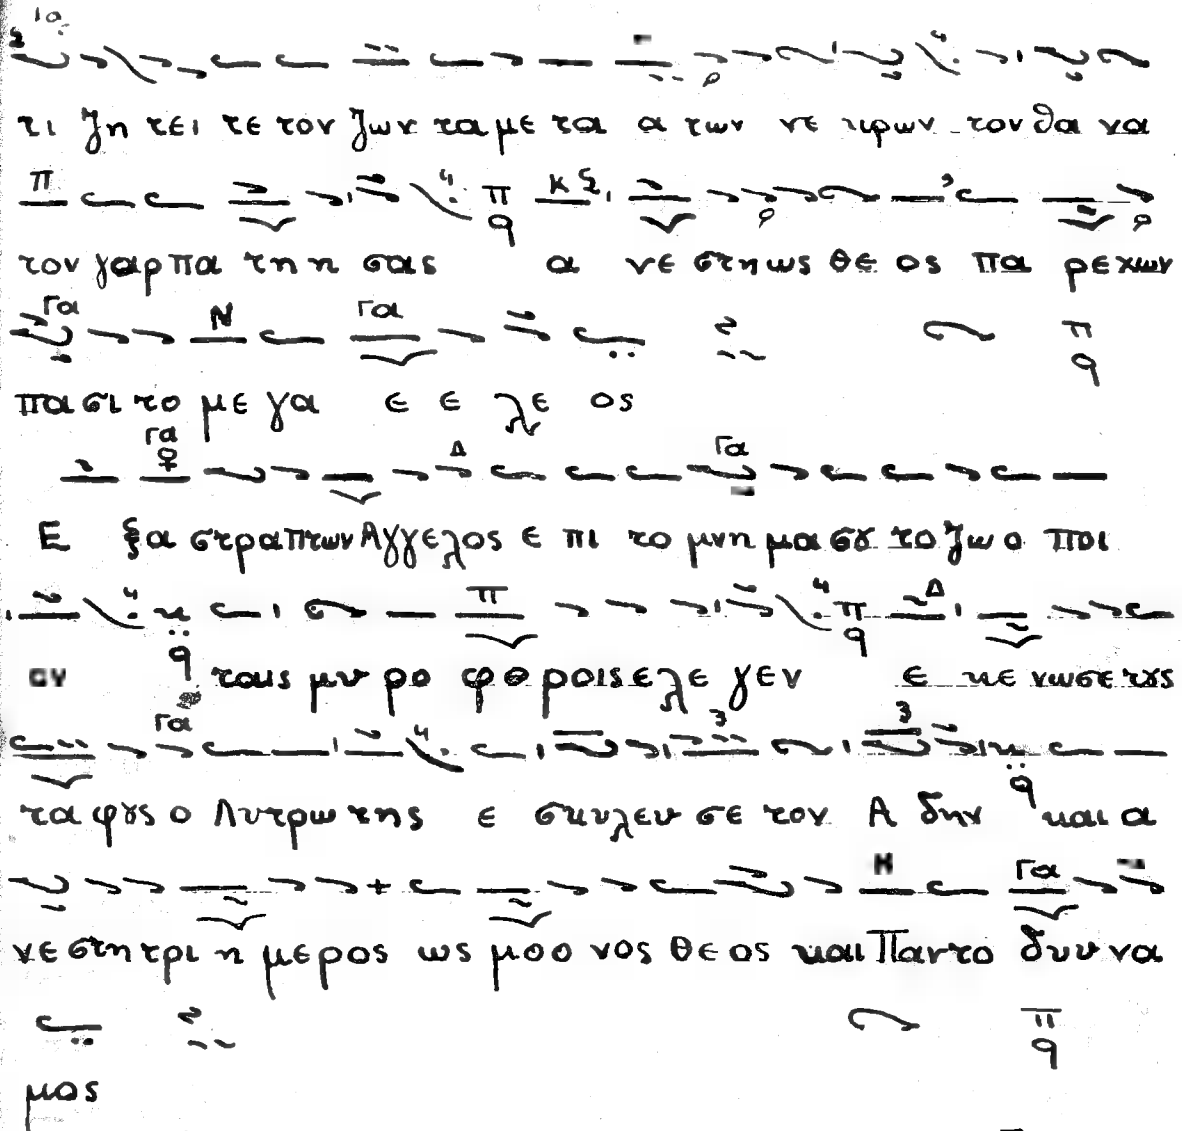 τι ζη τει τε τον ζων τα με τα α των νε κρων τον θα να
τον γαρ πα τη η σας α νε στη ως θε ος πα ρε χων
πα σι το με γα ε ε λε ος
Ε ξα στρα πτων Αγγελος ε πι το μνη μα σου το ζω ο ποι
ον τους μυ ρο φο ροις ε λε γεν ε κε νωσε τους
τα φους ο Λυτρω της ε σκυλευ σε τον Α δην και α
νε στη τρι η μερος ως μοο νος θε ος και Παντο δυυ να
μος